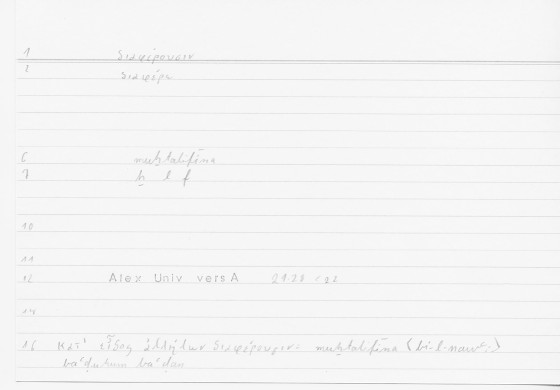 1 διαφέρουσιν
2 διαφέρω
6 muḫtalifīna
7 ḫ l f
10
11
12 Alex Univ versA 21.28 / 22
14
15 κατ' εἶδος ἀλλήλων διαφέρουσιν muḫtalifīna (bi-l-nawʿi)
baʿḍuhum baʿḍan